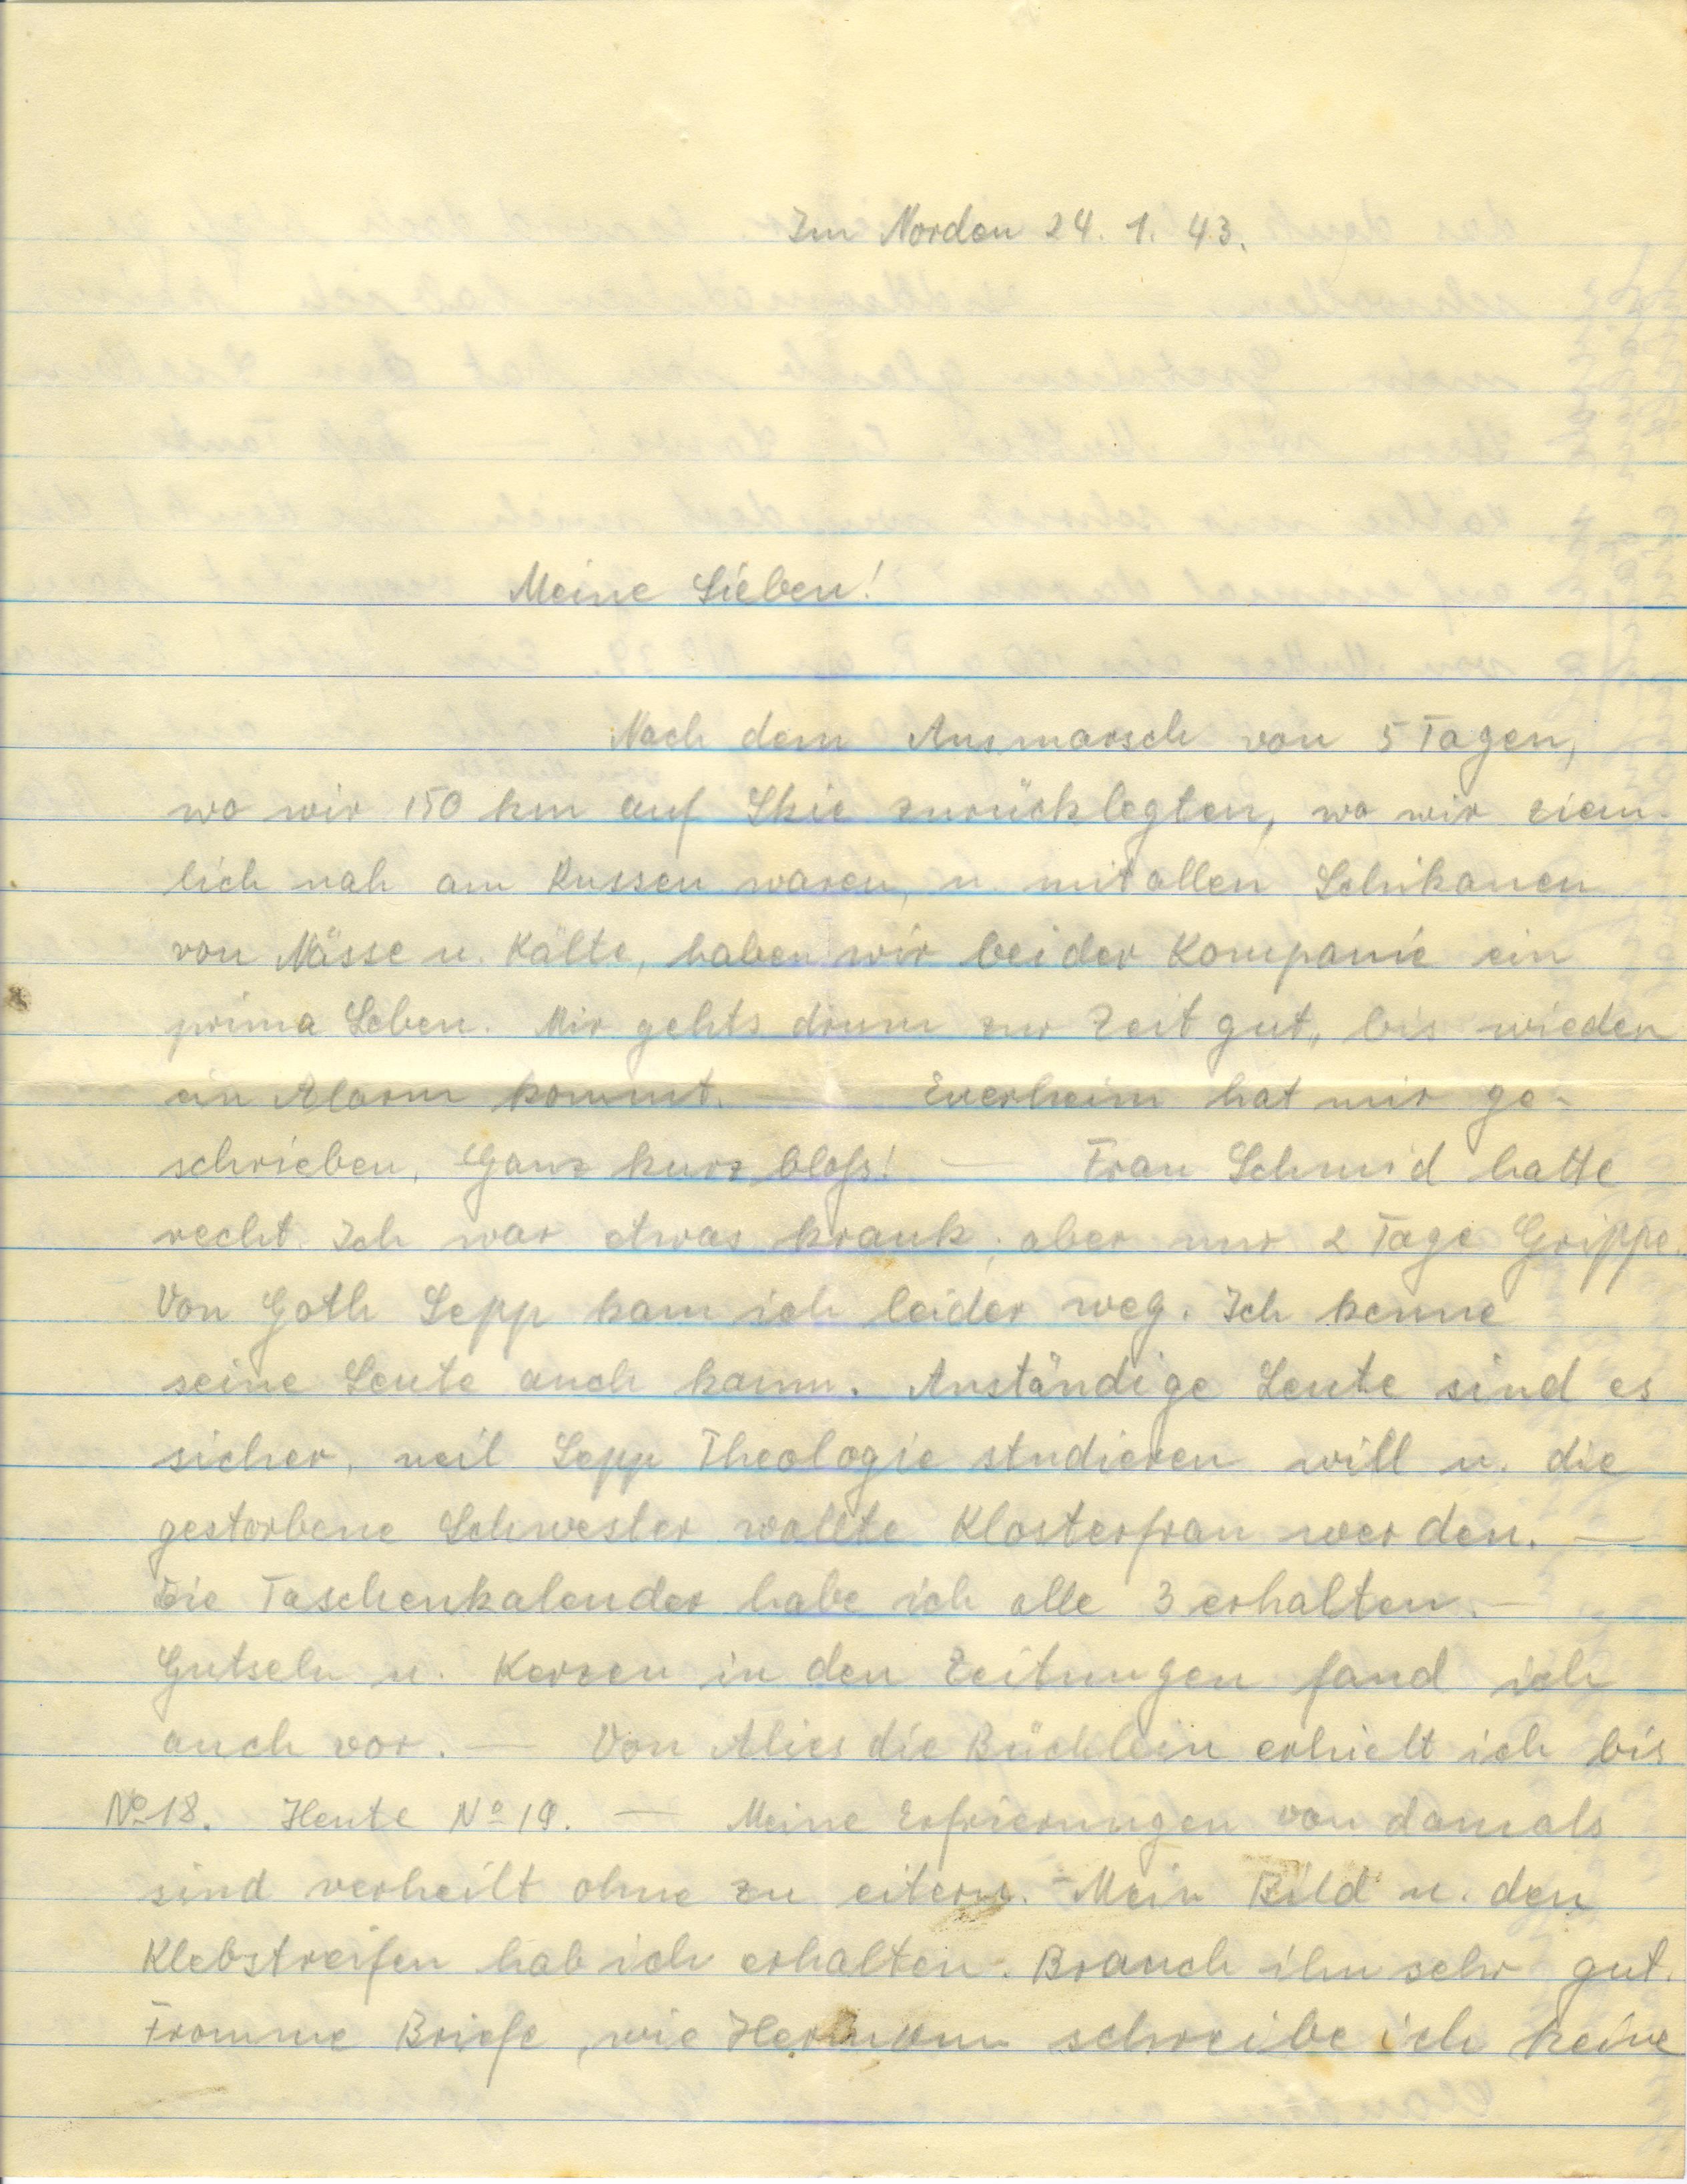 Im Norden 24. 1. 43.
Meine Lieben!
Nach dem Ausmarsch von 5 Tagen,
wo wir 150 km auf Skie zurücklegten, wo wir ziem-
lich nah am Russen waren, u. mit allen Schikanen
von Nässe u. Kälte, haben wir bei der Kompanie ein
prima Leben. Mir gehts drum zur Zeit gut, bis wieder
ein Alarm kommt. — Euerheim hat mir ge-
schrieben, Ganz kurz bloß! — Frau Schmid hatte
recht. Ich war etwas krank, aber nur 2 Tage Grippe.
Von Goth Sepp kam ich leider weg. Ich kenne
seine Leute auch kaum. Anständige Leute sind es
sicher, weil Sepp Theologie studieren will u. die
gestorbene Schwester wollte Klosterfrau werden. —
Die Taschenkalender habe ich alle 3 erhalten. —
Gutseln u. Kerzen in den Zeitungen fand ich
auch vor. — Von Alies die Büchlein erhielt ich bis
No 18. Heute No 19. — Meine Erfrierungen von damals
sind verheilt ohne zu eitern. - Mein Bild u. den
Klebstreifen hab ich erhalten. Brauch ihn sehr gut.
Fromme Briefe, wie Hermann schreibe ich keine